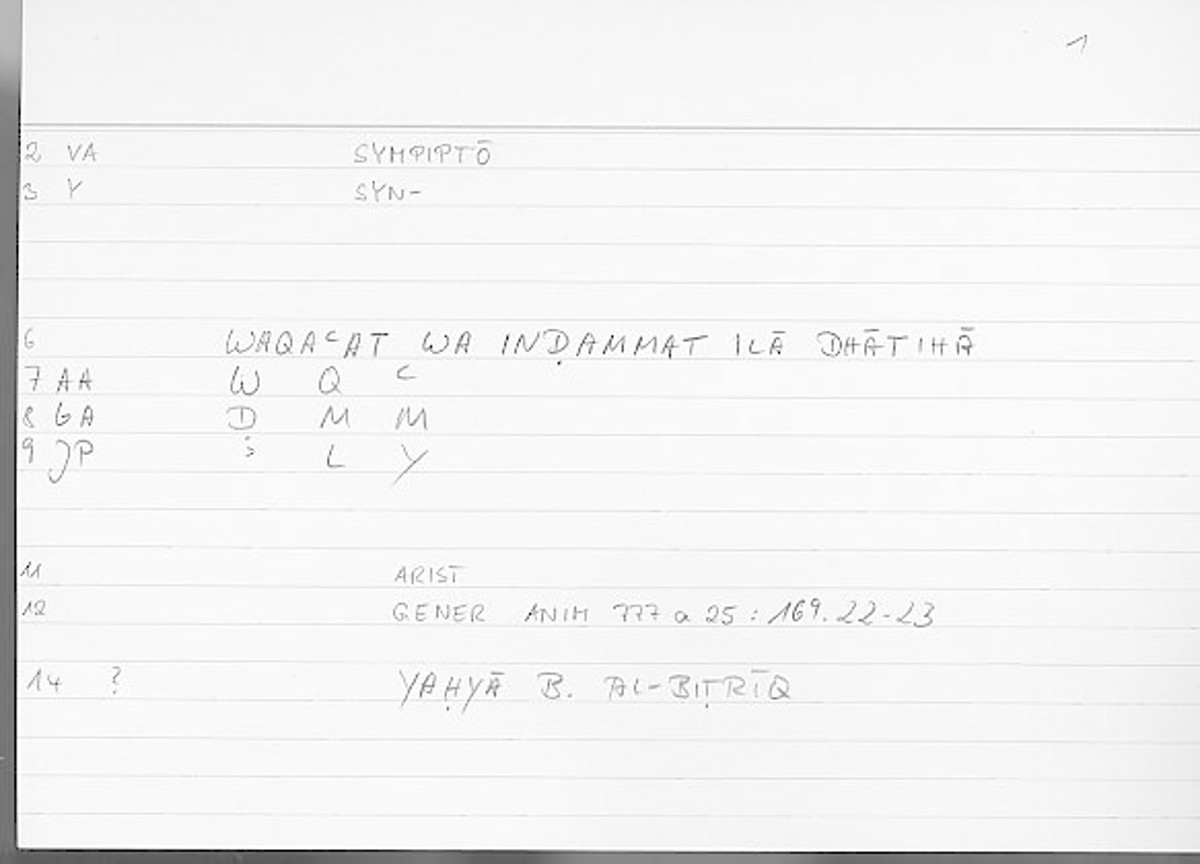 1
2 VA SYMPIPTŌ
3 Y SYN-
6 WAQAʿAT WA INḌAMMAT ILĀ DHĀTIHĀ
7 AA W Q ʿ
8 GA Ḍ M M
9 JP ʾ L Y
11 ARIST
12 GENER ANIM 777 a 25 : 169.22-23
14 ? YAḤYĀ B. AL-BIṬRĪQ